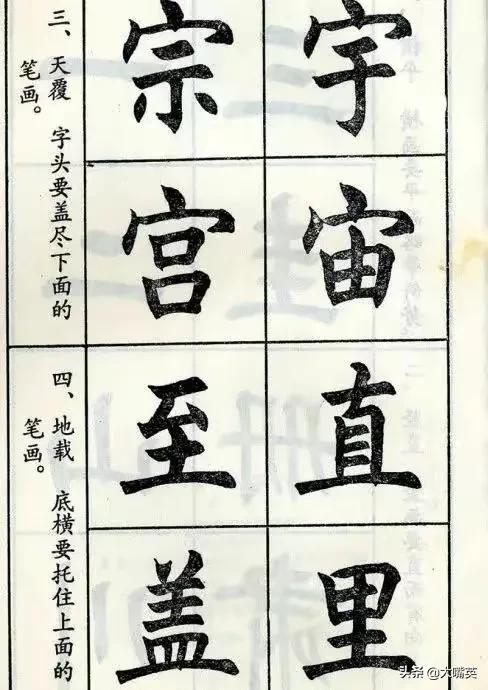 宇宙直里
宗宫至盖
三、天覆 字头要盖尽下面的
笔画。
四、地载 底横要托住上面的
笔画。
头条 @大嘴英